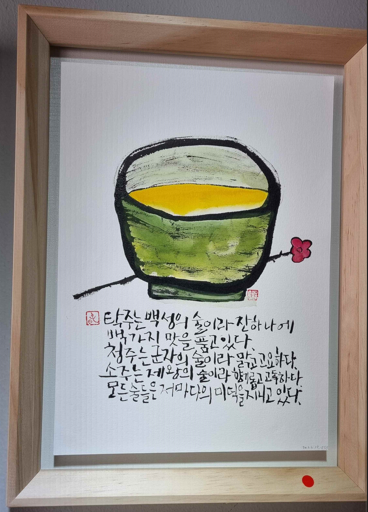 탁주는 백성의 술이라 잔 하나에
백 가지 맛을 품고 있다.
청주는 군자의 술이라 맑고 고요하다.
소주는 제왕의 술이라 향기롭고 고독하다.
모든 술들은 저마다의 미덕을 지니고 있다.